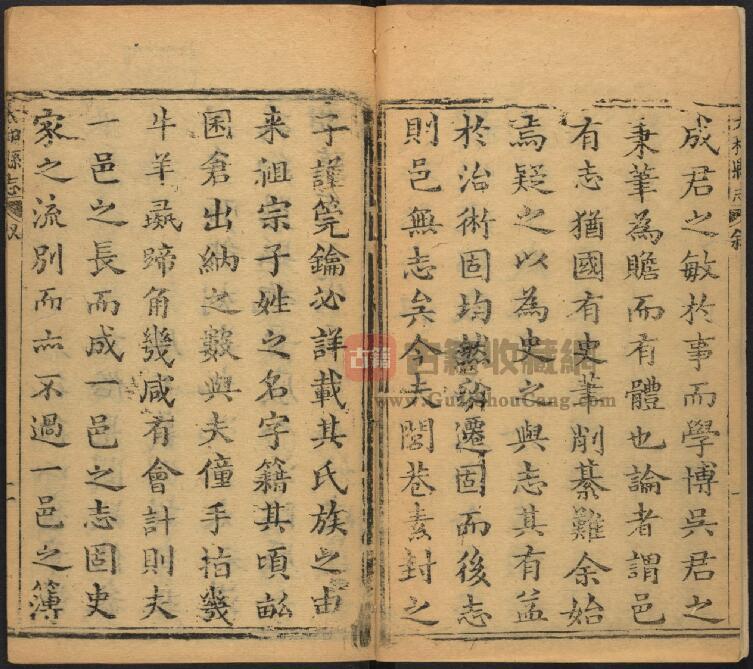 成君之敏於事而學博吳君之
秉筆為贍而有體也論者謂邑
有志猶國有史筆削綦難余始
焉疑之以為史之與志其有益
於治術固均遷固而後志
則邑無志矣今夫閭巷素封之
子謹筦鑰必詳載其氏族之由
來祖宗子姓之名字籍其頃畝
囷倉出納之數與夫僮手指幾
牛羊蹄角幾咸有會計則夫
一邑之長而成一邑之志固史
家之流別而亦不過一邑之簿
古籍收藏網
www.GuJiShouCang.com